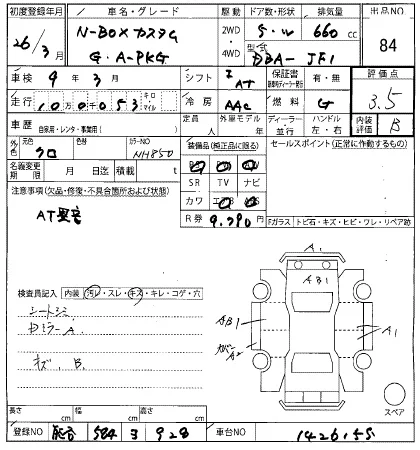 初度登録年月 車名・グレード 駆動 ドア数・形状 排気量 出品NO
26/3月 N-BOX カスタム 2WD・4WD 5・W 660cc 84
G・A-PKG 型式 DBA-JF1
車検 9年3月 シフト AT 保証書 有・無 評価点
走行 100,053 キロ マイル 冷房 AAC 燃料 G 3.5
車歴 自家用・レンタ・事業用( ) 定員 外車モデル ディーラー・並行 ハンドル 左・右 内装評価 B
外色 元色 クロ 色替 カラーNO NH850
装備品(純正品に限る) セールスポイント(正常に作動するもの)
名義変更期限 月 日迄 積載 t
SR TV ナビ
カワ
R券 9,290円
注意事項(欠品・修復・不具合箇所および状態)
AT異音
Fガラス トビ石・キズ・ヒビ・ワレ・リペア跡
検査員記入 内装 汚レ・スレ・キズ・キレ・コゲ・穴
シートシミ
キズ、B.
A1
AB1
AB1
A1
A2
スペア
長さ cm 幅 cm 高さ cm
登録NO 熊谷 584 ヨ 928 車台NO 1426155